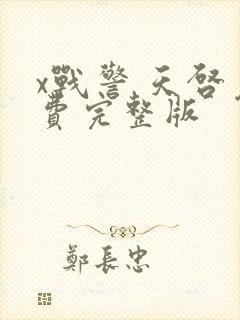 x戰警天啓
費完整版
鄭長忠